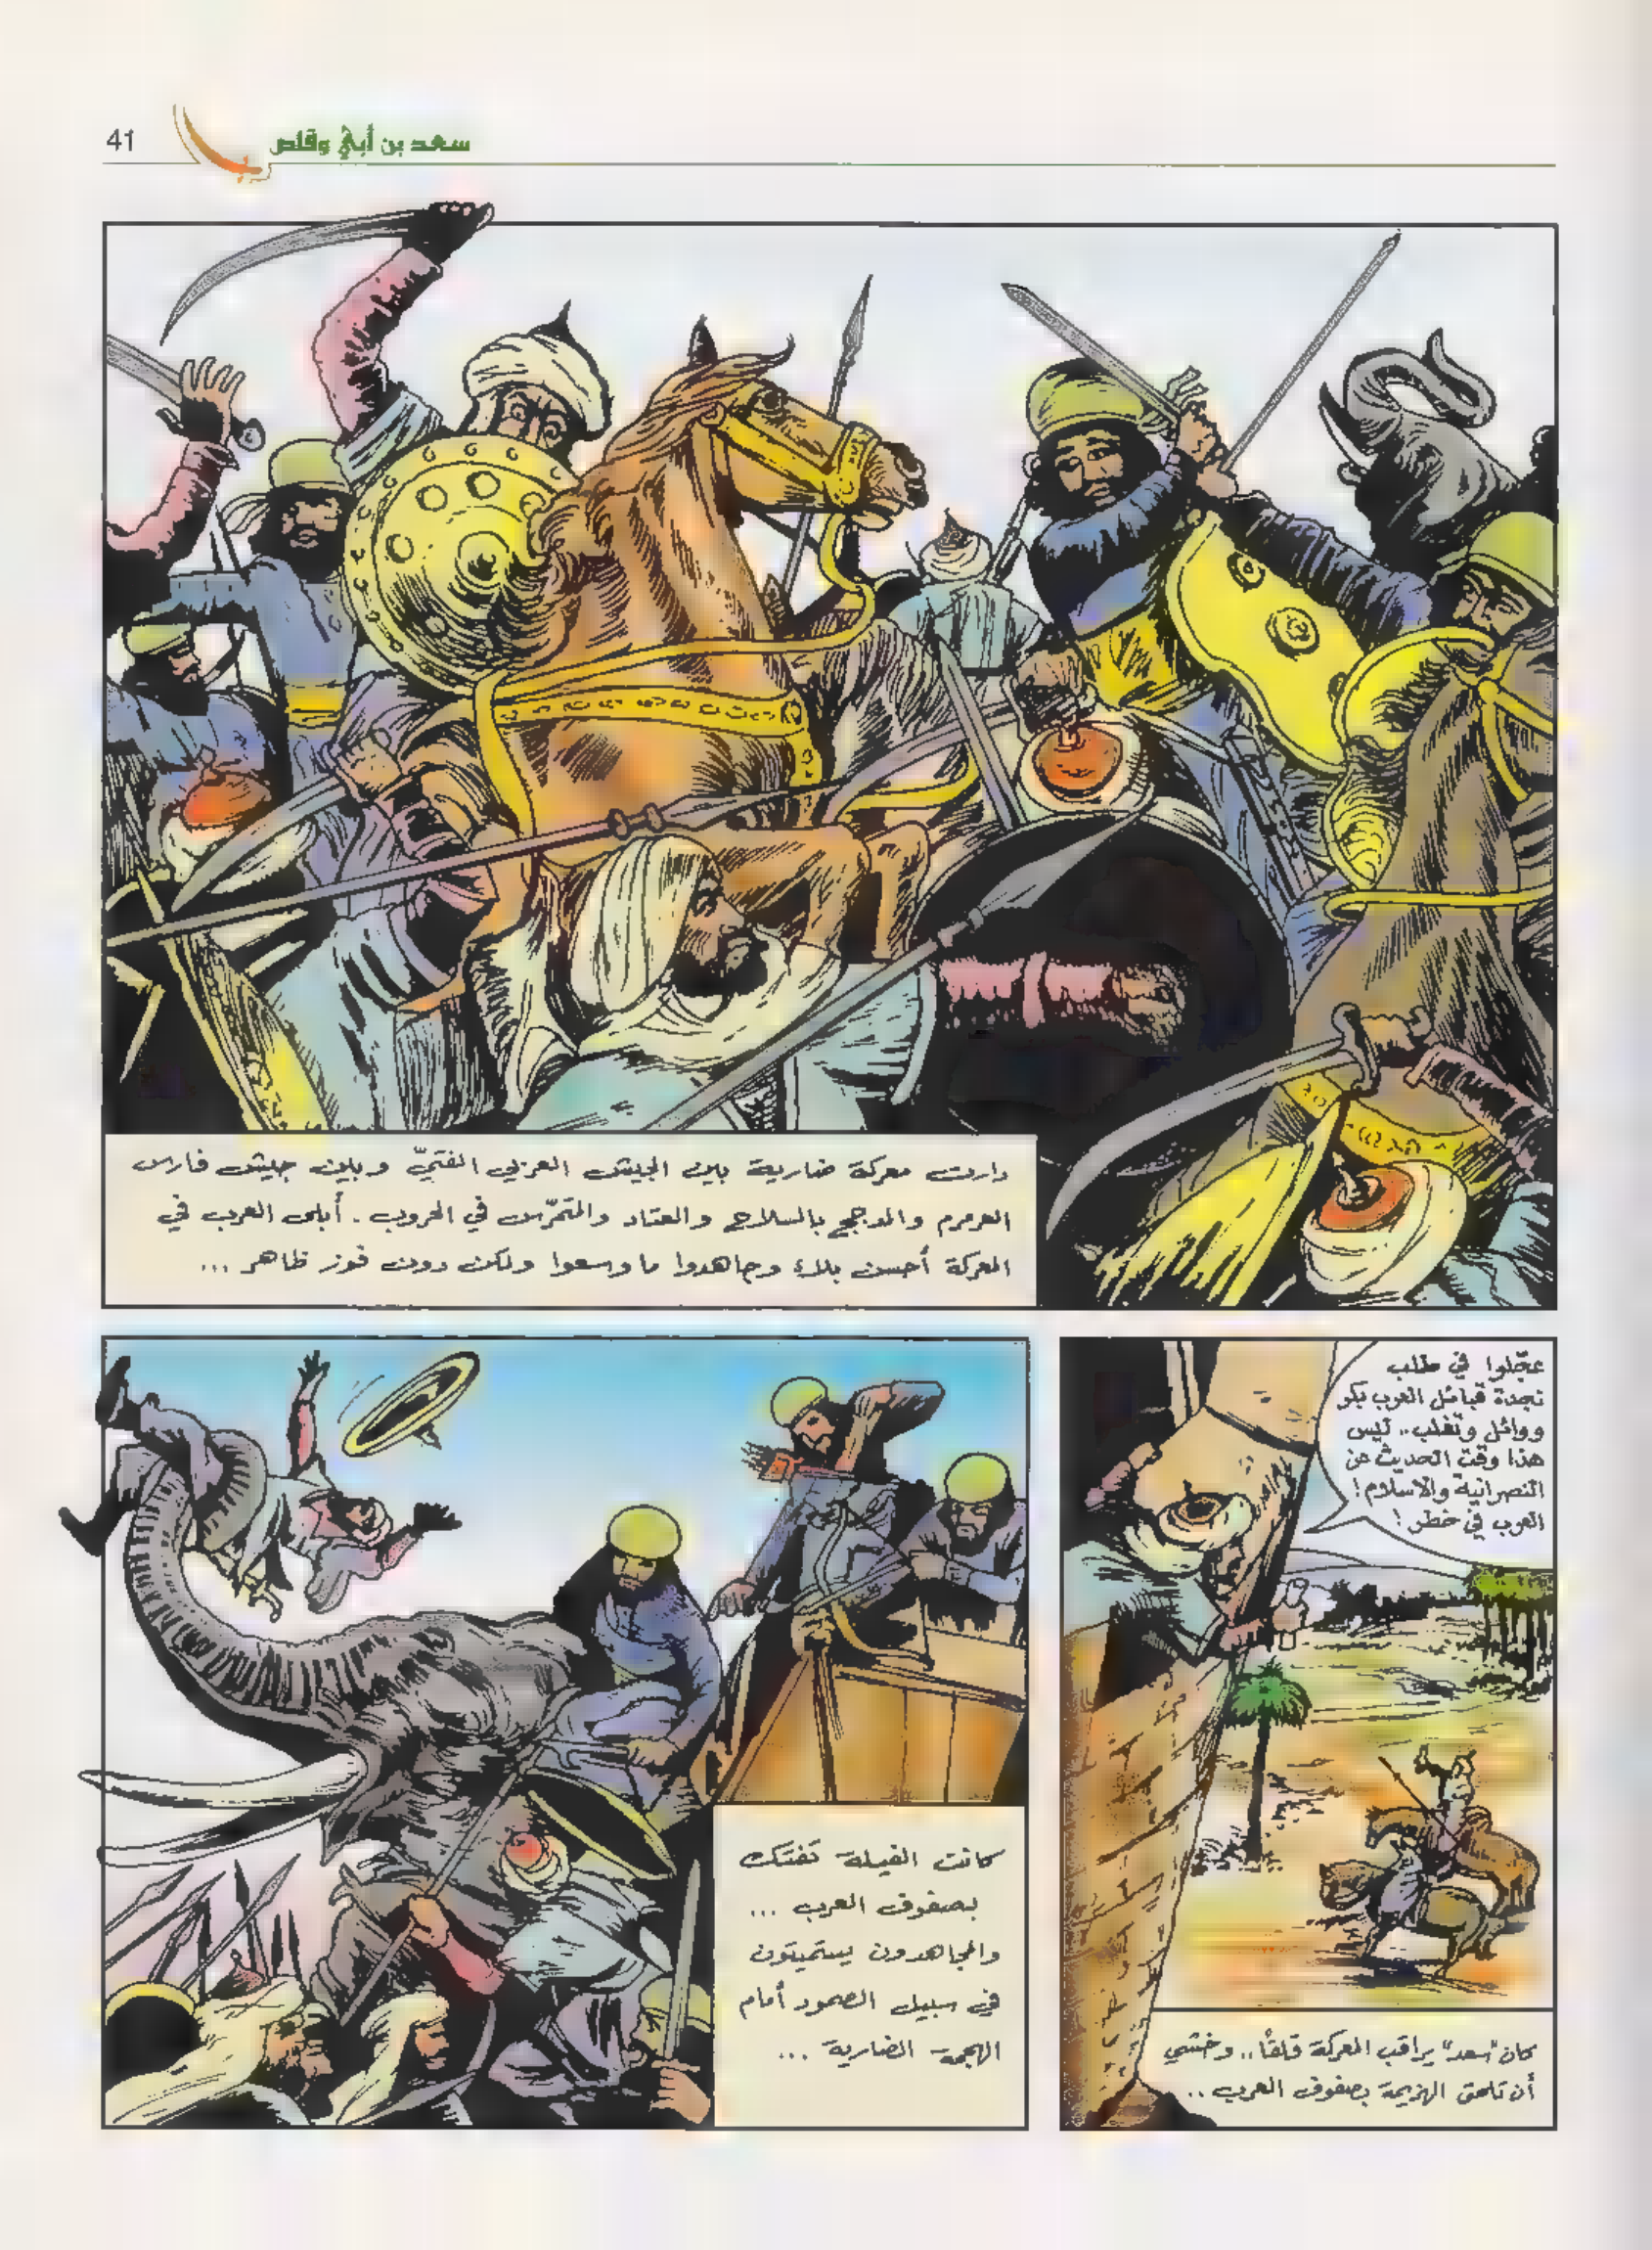 41
سعد بن أبي وقاص
دارت معركة ضارية بين الجيش العربي الفتيّ وبين جيش فارس
العرمرم والمدجج بالسلاح والعتاد والمتمرّس في الحروب. أبلى العرب في
المعركة أحسن بلاء وجاهدوا ما وسعوا ولكن دون فوز ظاهر ...
عجّلوا في طلب
نجدة قبائل العرب بكر
ووائل وتغلب.. ليس
هذا وقت الحديث عن
النصرانية والاسلام!
العرب في خطر!
كان "سعد" يراقب المعركة قلقاً.. وخشي
أن تلحق الهزيمة بصفوف العرب..
كانت الفيلة تفتك
بصفوف العرب ...
والمجاهدون يستميتون
في سبيل الصمود أمام
الهجمة الضارية ...